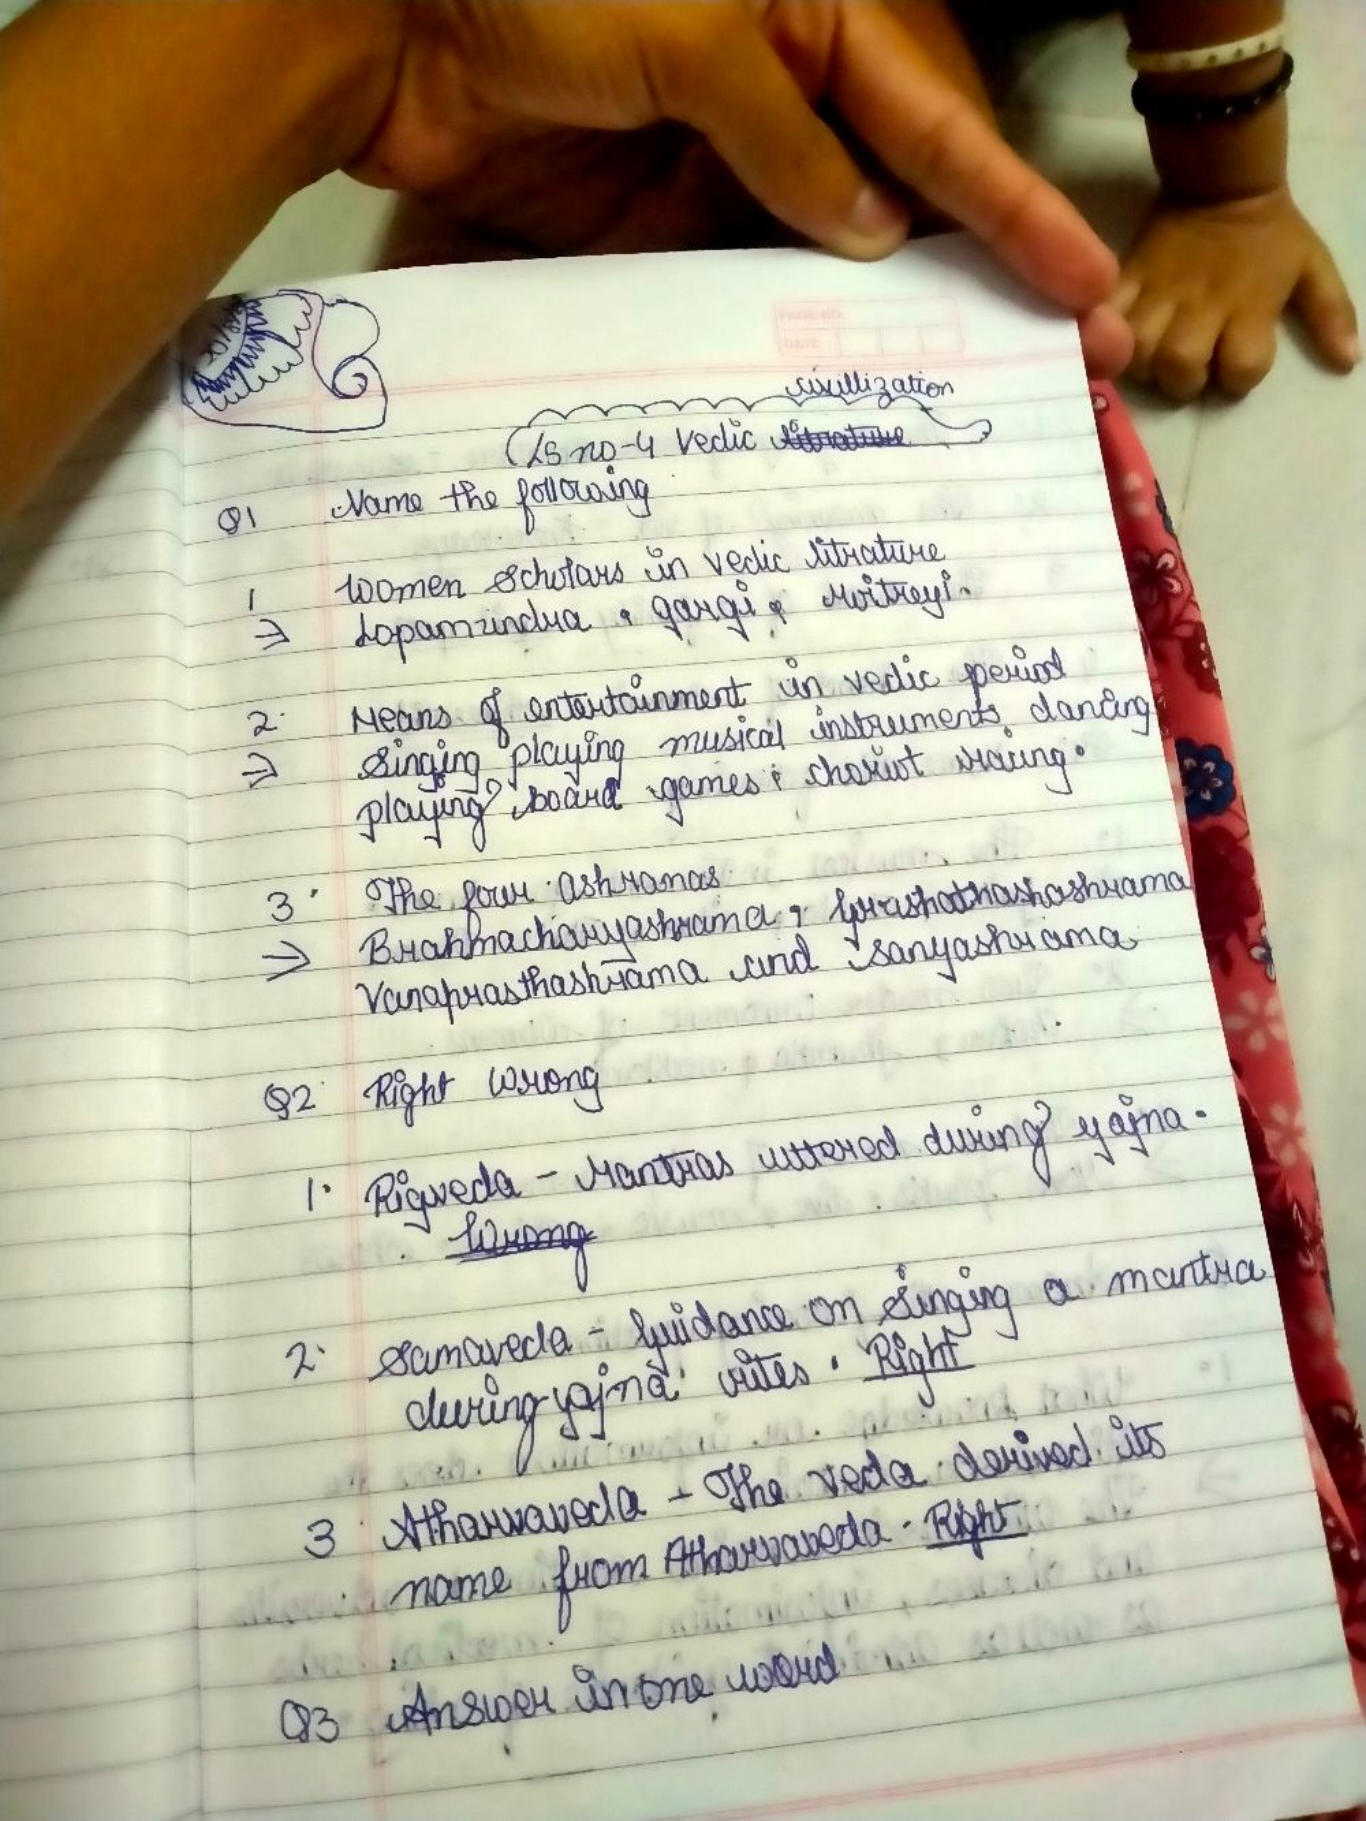 20/8/
PAGE NO.
DATE
civillization
Ls no-4 Vedic litrature
Q1 Name the following
1 Women scholars in vedic litrature
⇒ Lopamundra, gargi, Moitreyi.
2. Means of entertainment in vedic period
⇒ Singing playing musical instruments dancing
playing board games, chariot racing.
3. The four ashramas
⇒ Brahmacharyashrama, Grashathashashrama
Vanaprasthashrama and sanyashrama
Q2 Right Wrong
1. Rigveda - Mantras uttered during yajna.
Wrong
2. Samaveda - Guidance on singing a mantra
during yajna rites. Right
3 Atharvaveda - The veda derived its
name from Atharvaveda. Right
Q3 Answer in one word